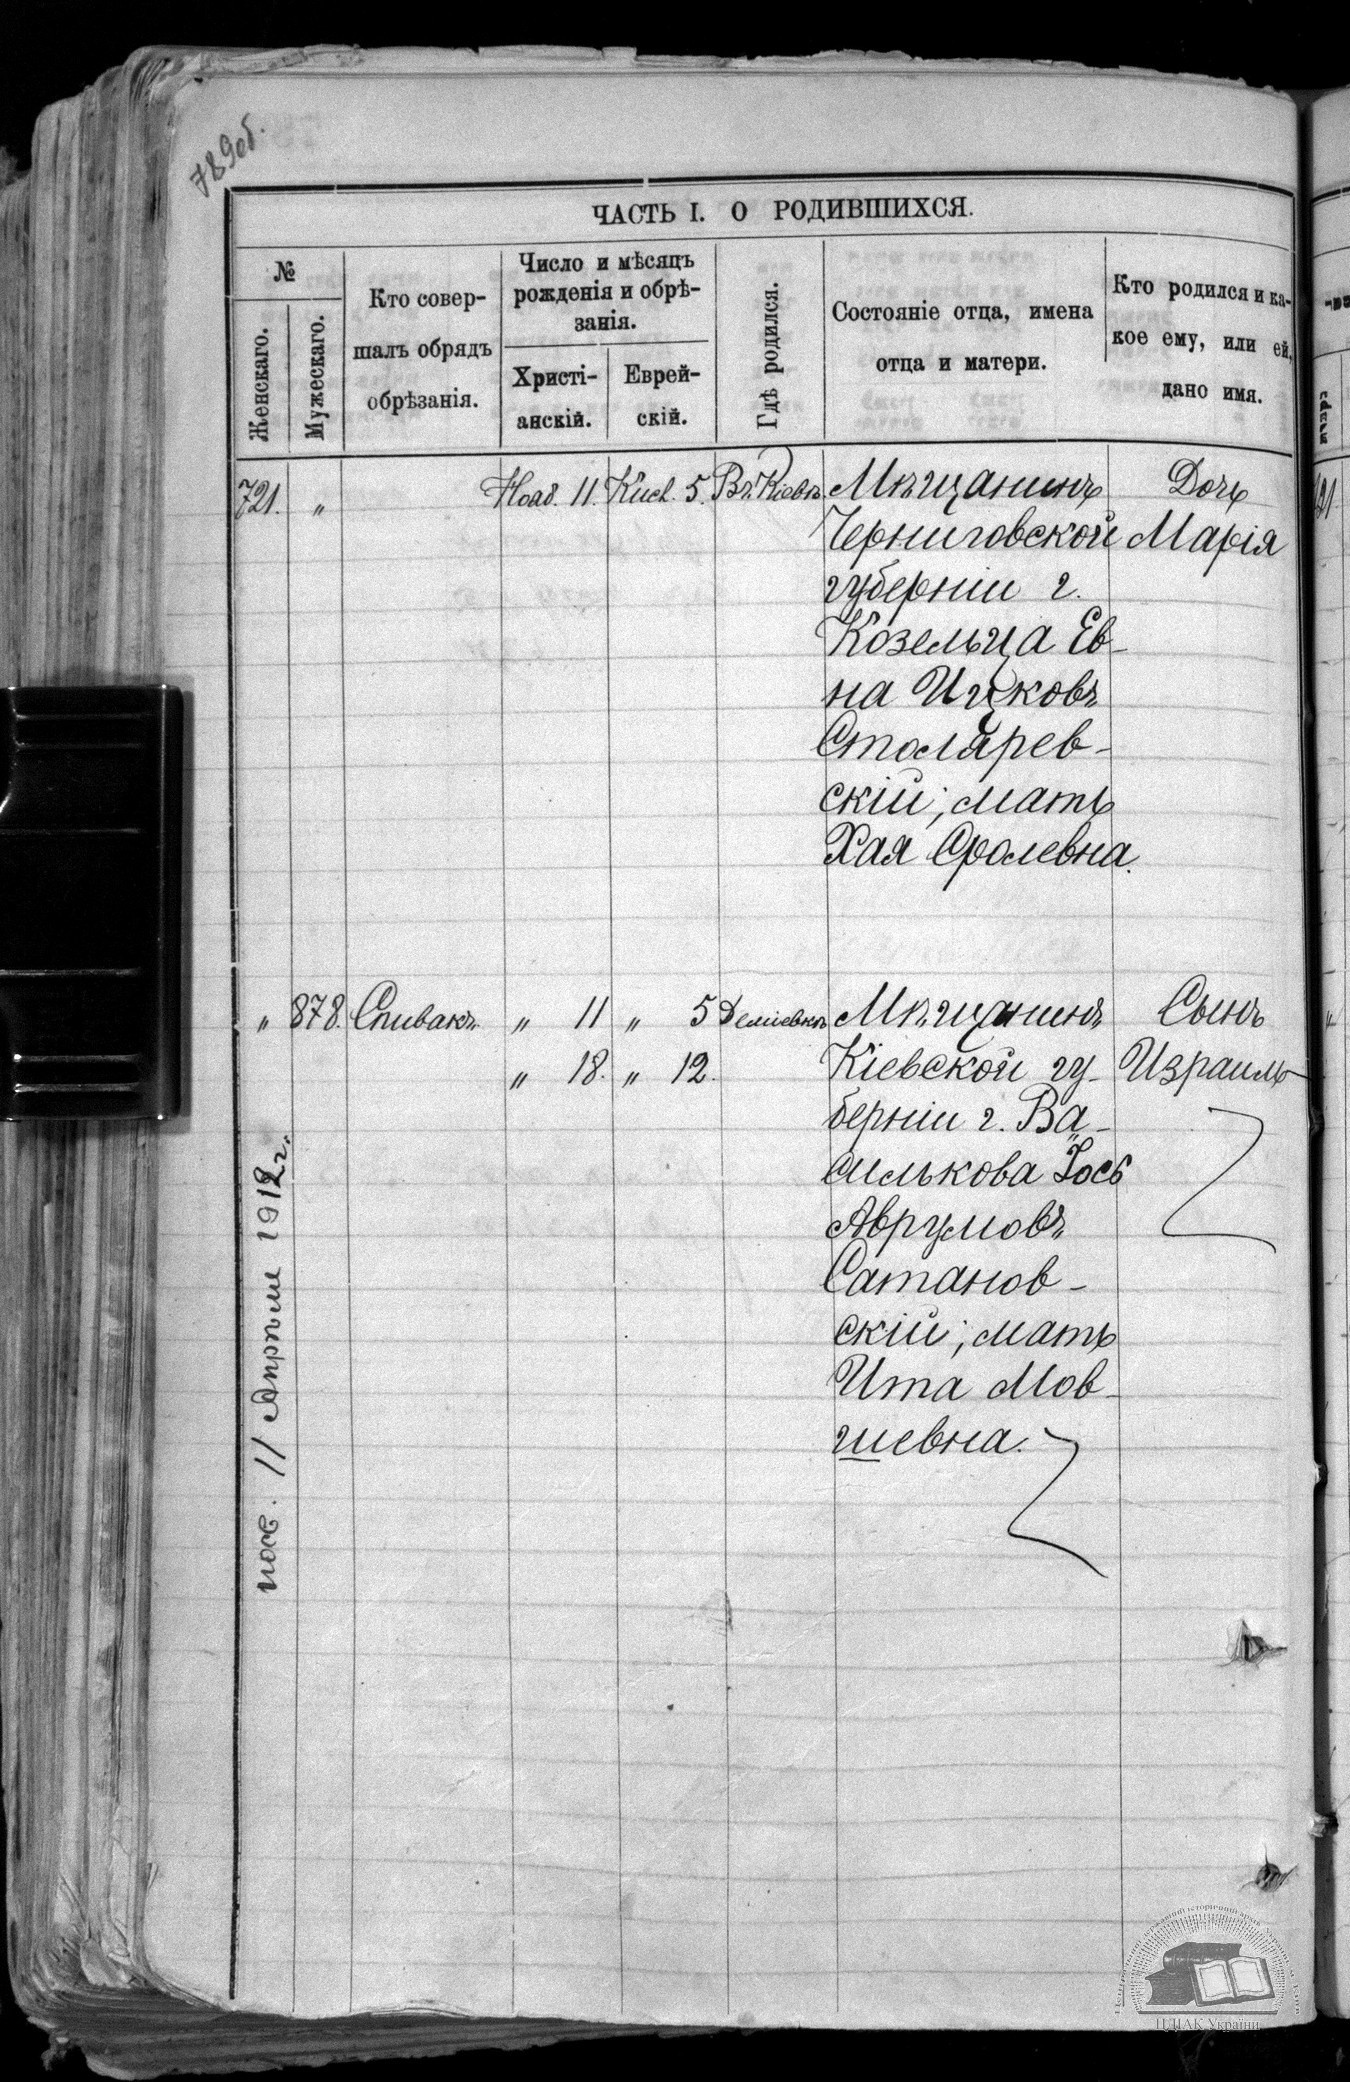 789об.
ЧАСТЬ I. О РОДИВШИХСЯ.
№
Женскаго.
Мужескаго.
Кто совер-
шалъ обрядъ
обрѣзанія.
Число и мѣсяцъ
рожденія и обрѣ-
занія.
Христі-
анскій.
Еврей-
скій.
Гдѣ родился.
Состояніе отца, имена
отца и матери.
Кто родился и ка-
кое ему, или ей,
дано имя.
721. „ Нояб. 11. Кисл. 5. Въ Кіевѣ. Мѣщанинъ Дочь
Черниговской Марія
губерніи г.
Козельца Ев-
на Ицковъ
Столярев-
скій; мать
Хая Сролевна.
„ 878. Спивакъ „ 11 „ 5 Деміевкѣ Мѣщанинъ Сынъ
„ 18. „ 12. Кіевской гу- Израиль
берніи г. Ва-
силькова Іось
Аврумовъ
Сатанов-
скій; мать
Ита Мов-
шевна.
11 Апрѣля 1912 г.
121
ЦДІАК України